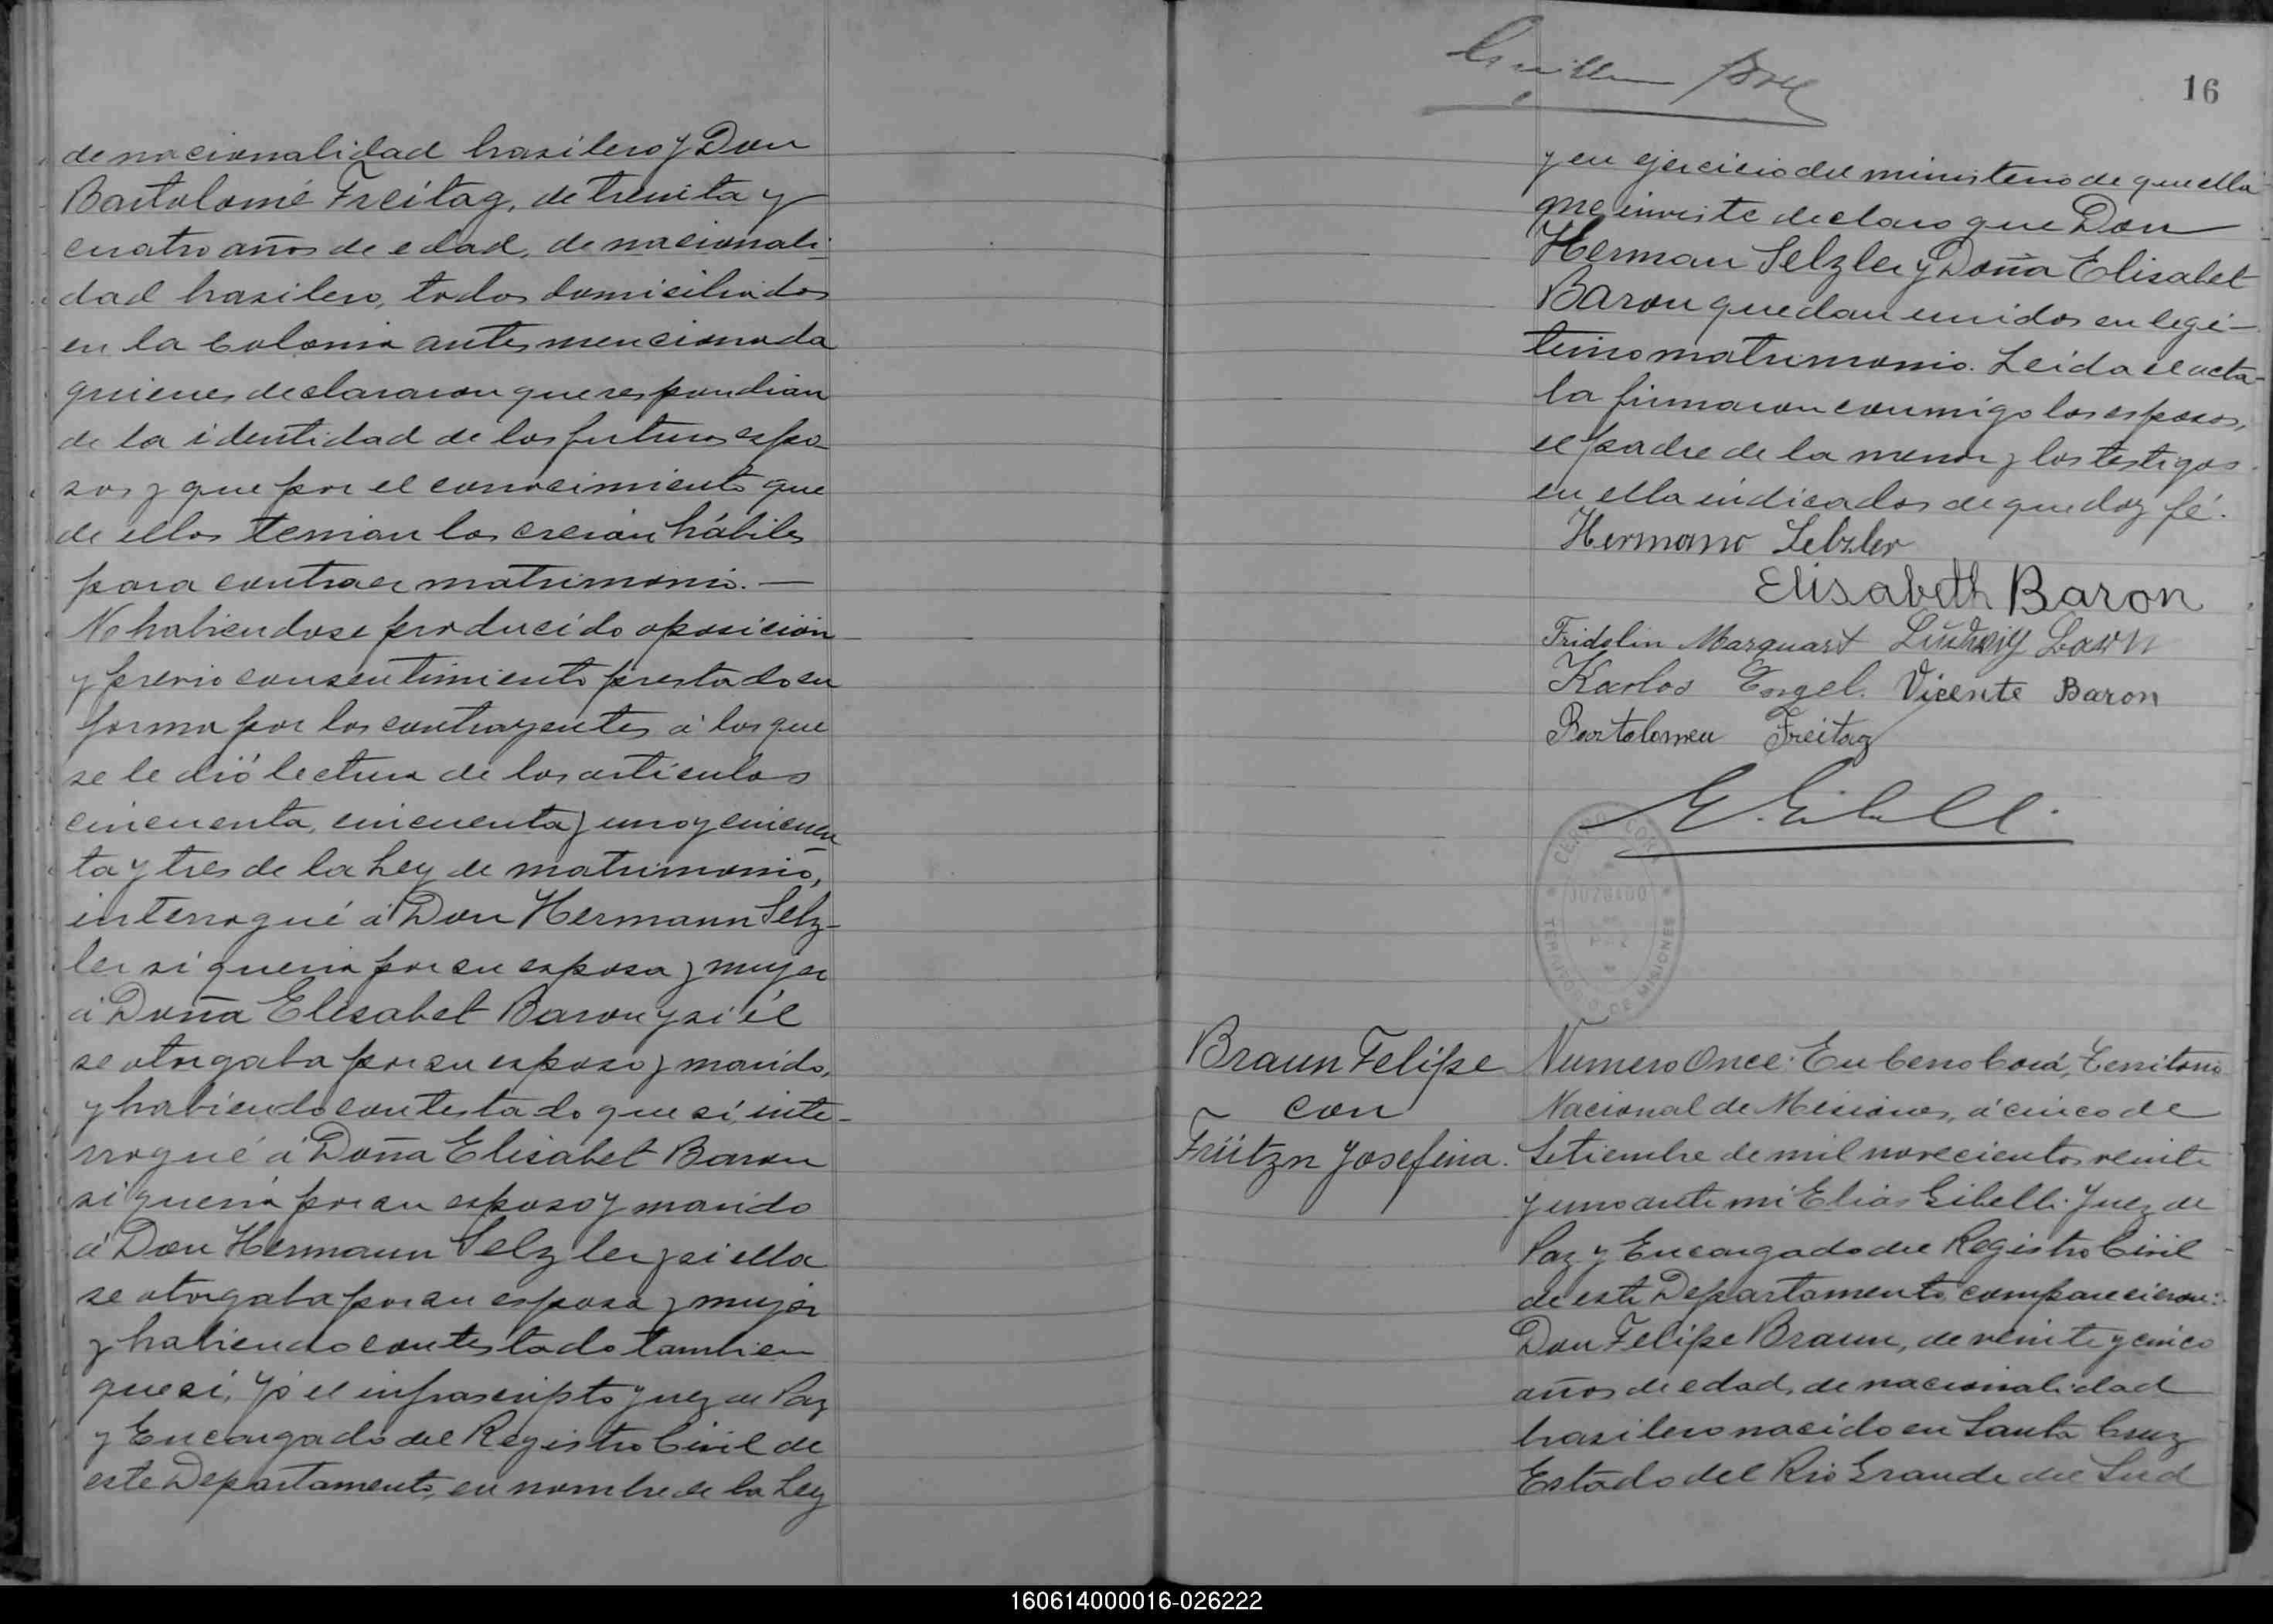 de nacionalidad brasilero y Don
Bartolomé Freitag, de treinta y
cuatro años de edad, de nacionali-
dad brasilero, todos domiciliados
en la Colonia antes mencionada
quienes declararon que respondian
de la identidad de los futuros espo-
sos y que por el conocimiento que
de ellos tenian los creián hábiles
para contraer matrimonio. —
No habiendose producido oposición
y previo consentimiento prestado en
forma por los contrayentes á los que
se le dió lectura de los artículos
cincuenta, cincuenta y uno y cincuen
ta y tres de la Ley de matrimonio,
interrogué á Don Hermann Selz-
ler si queria por su esposa y mujer
á Doña Elisabet Baron y si él
se otorgaba por su esposo y marido,
y habiendo contestado que sí, inte-
rrogué á Doña Elisabet Baron
si queria por su esposo y marido
á Don Hermann Selzler y si ella
se otorgaba por su esposa y mujer
y habiendo contestado tambien
que sí, Yó el infrascripto Juez de Paz
y Encargado del Registro Civil de
este Departamento, en nombre de la Ley
16
y en ejercicio del ministerio de que ella
me inviste declaro que Don
Herman Selzler y Doña Elisabet
Baron quedan unidos en legi-
timo matrimonio. Leida el acta-
la firmaron conmigo los esposos,
el padre de la menor y los testigos
en ella indicados de que doy fé.
Hermano Selzler
Elisabeth Baron
Fridolin Marquart Ludwig
Karlos Engel. Vicente Baron
Bartolomeu Freitag
E. Gibelli.
CERRO CORÁ
JUZGADO
DE
PAZ
TERRITORIO DE MISIONES
Braun Felipe
con
Früitzn Josefina.
Numero Once. En Cerro Corá, Territorio
Nacional de Misiones, á cinco de
Setiembre de mil novecientos veinte
y uno ante mi Elias Gibelli Juez de
Paz y Encargado del Registro Civil
de este Departamento, comparecieron:
Don Felipe Braun, de veinte y cinco
años de edad, de nacionalidad
brasilero nacido en Santa Cruz
Estado del Rio Grande del Sud